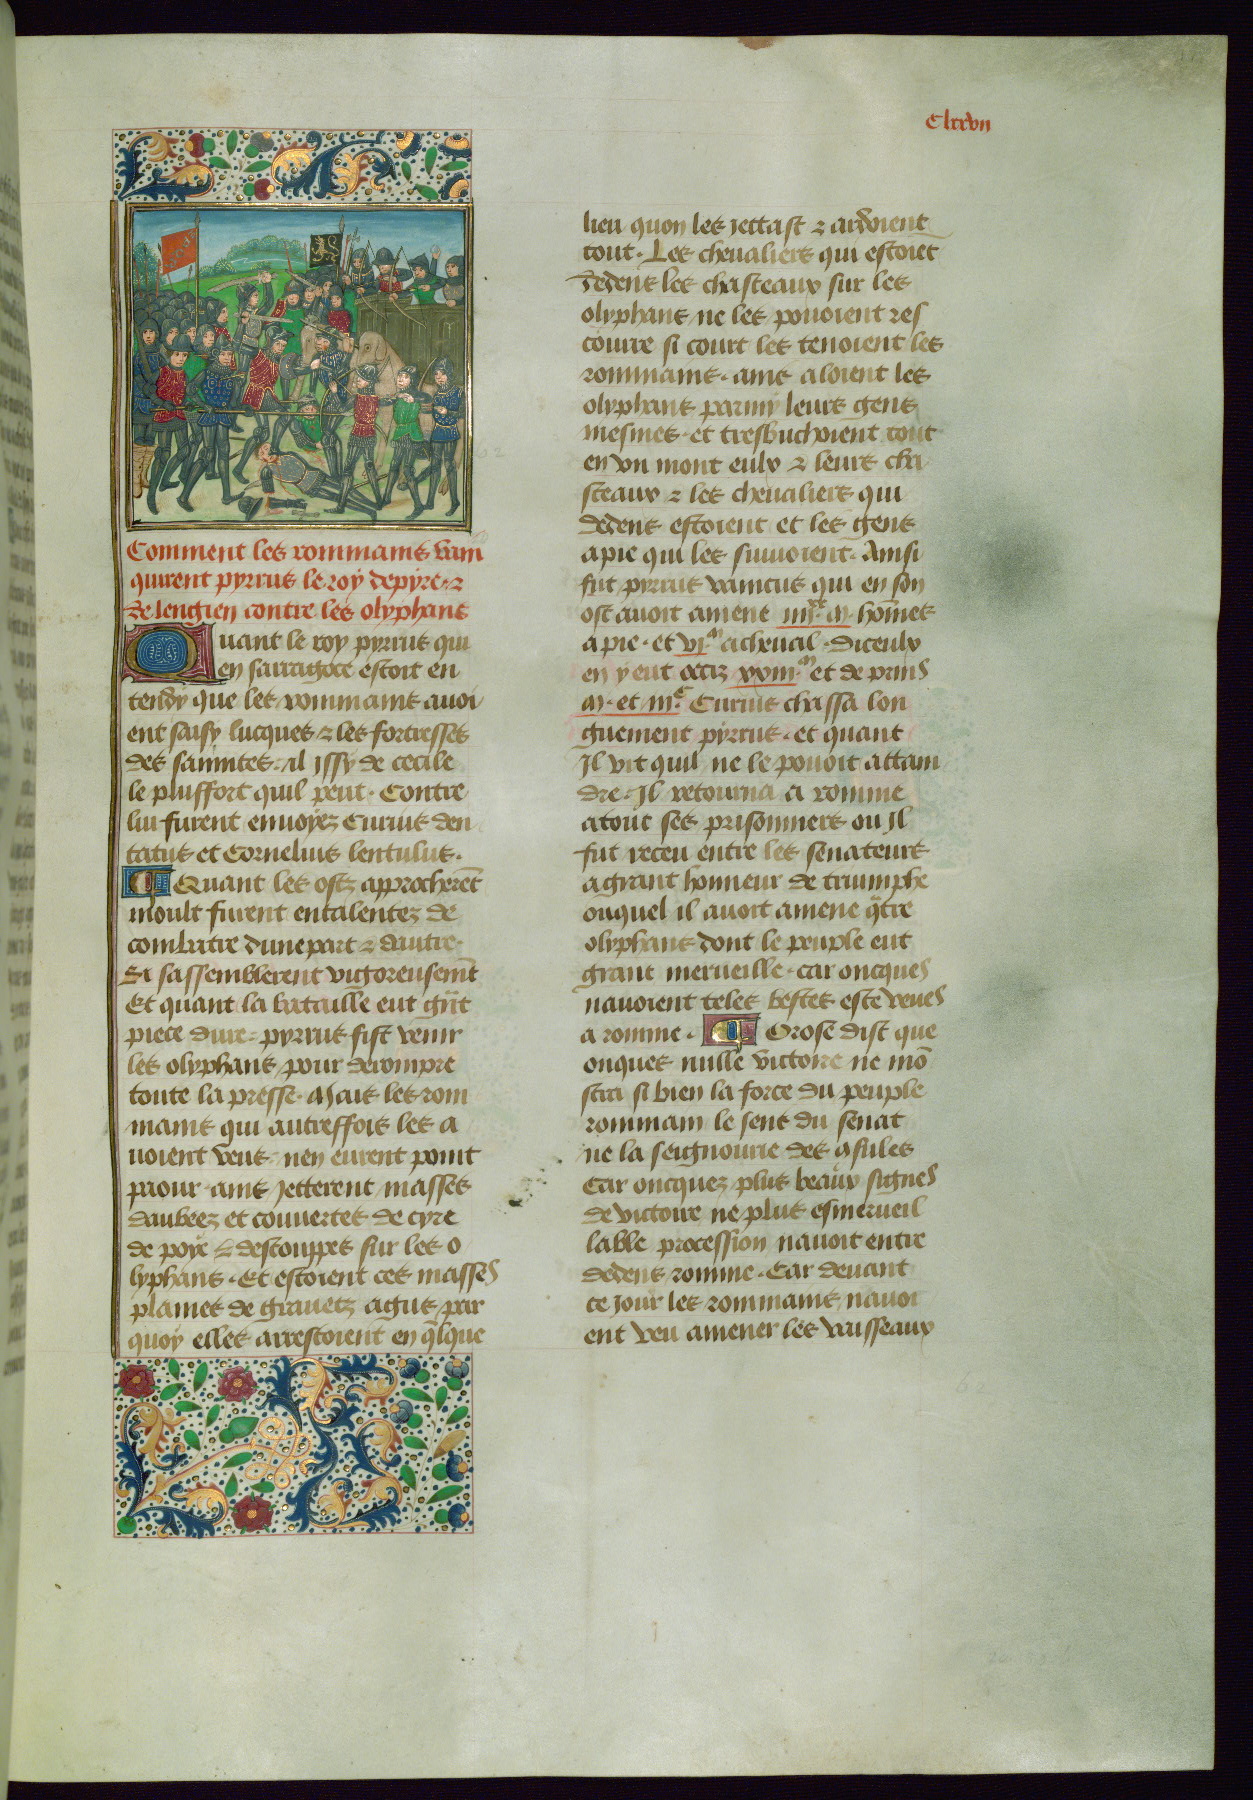 Clxxvii
Comment les rommains vain
quirent pyrrus le roy depyre ⁊
de lengien contre les olyphans
Quant le roy pyrrus qui
en sarragoce estoit en
tendy que les rommains avoi
ent saisy lucques ⁊ les fortresses
des samites il issy de cecile
le plusfort quil peut. Contre
lui furent envoyez Curius den
tatus et Cornelius lentulus.
Quant les ostz approcherēt
moult furent entalentez de
combatre dune part ⁊ dautre.
Si sassemblerent vigoreusemēt
Et quant la bataille eut grāt
piece dure. pyrrus fist venir
les olyphans pour derompre
toute la presse. Mais les rom
mains qui autreffois les a
uoient veus nen eurent point
paour ains jetterent masses
daubeez et couvertes de cyre
de poye ⁊ destouppes sur les o
lyphans. Et estoient ces masses
plaines de gravetz agus par
quoy elles arrestoient en q̄lque
lieu quon les jettast ⁊ ardoient
tout. Les chevaliers qui estoiēt
dedens les chasteaux sur les
olyphans ne les pouoient res
courre si court les tenoient les
rommains. ains aloient les
olyphans parmy leurs gens
mesmes. et tresbuchoient tout
en un mont eulx ⁊ leurs cha
steaux ⁊ les chevaliers qui
dedens estoient et les gens
apie qui les suivoient. Ainsi
fut pyrrus vaincus qui en son
ost avoit amene iiii.xx m. hōmes
apie. et vi.m acheval. diceulx
en y eut occiz xxiii.m et de prins
m. et iii.c Curius chassa lon
guement pyrrus. et quant
Il vit quil ne le povoit attain
dre. Il retourna a romme
atout ses prisonniers ou Il
fut receu entre les senateurs
agrant honneur de triumphe
ouquel il avoit amene q̄tre
olyphans dont le peuple eut
grant merveille. car oncques
navoient teles bestes este veues
a romme. Orose dist que
onques nulle victoire ne mō
stra si bien la force du peuple
rommain le sens du senat
ne la seignourie des ɔsules
Car oncquez plus beaux signes
de victoire ne plus esmerveil
lable procession navoit entre
dedens romme. Car devant
ce jour les rommains navoi
ent veu amener les vaisseaux